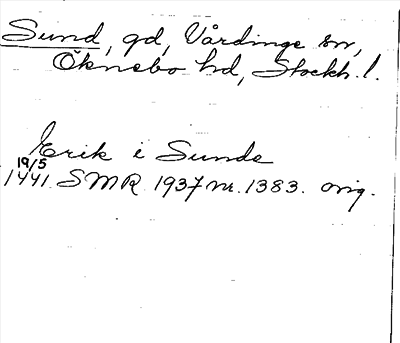 Sund, gd, Vårdinge sn,
Öknebo hd, Stockh. l.
Erik i Sunde
19/5
1441 SMR 1937 nr. 1383. orig.